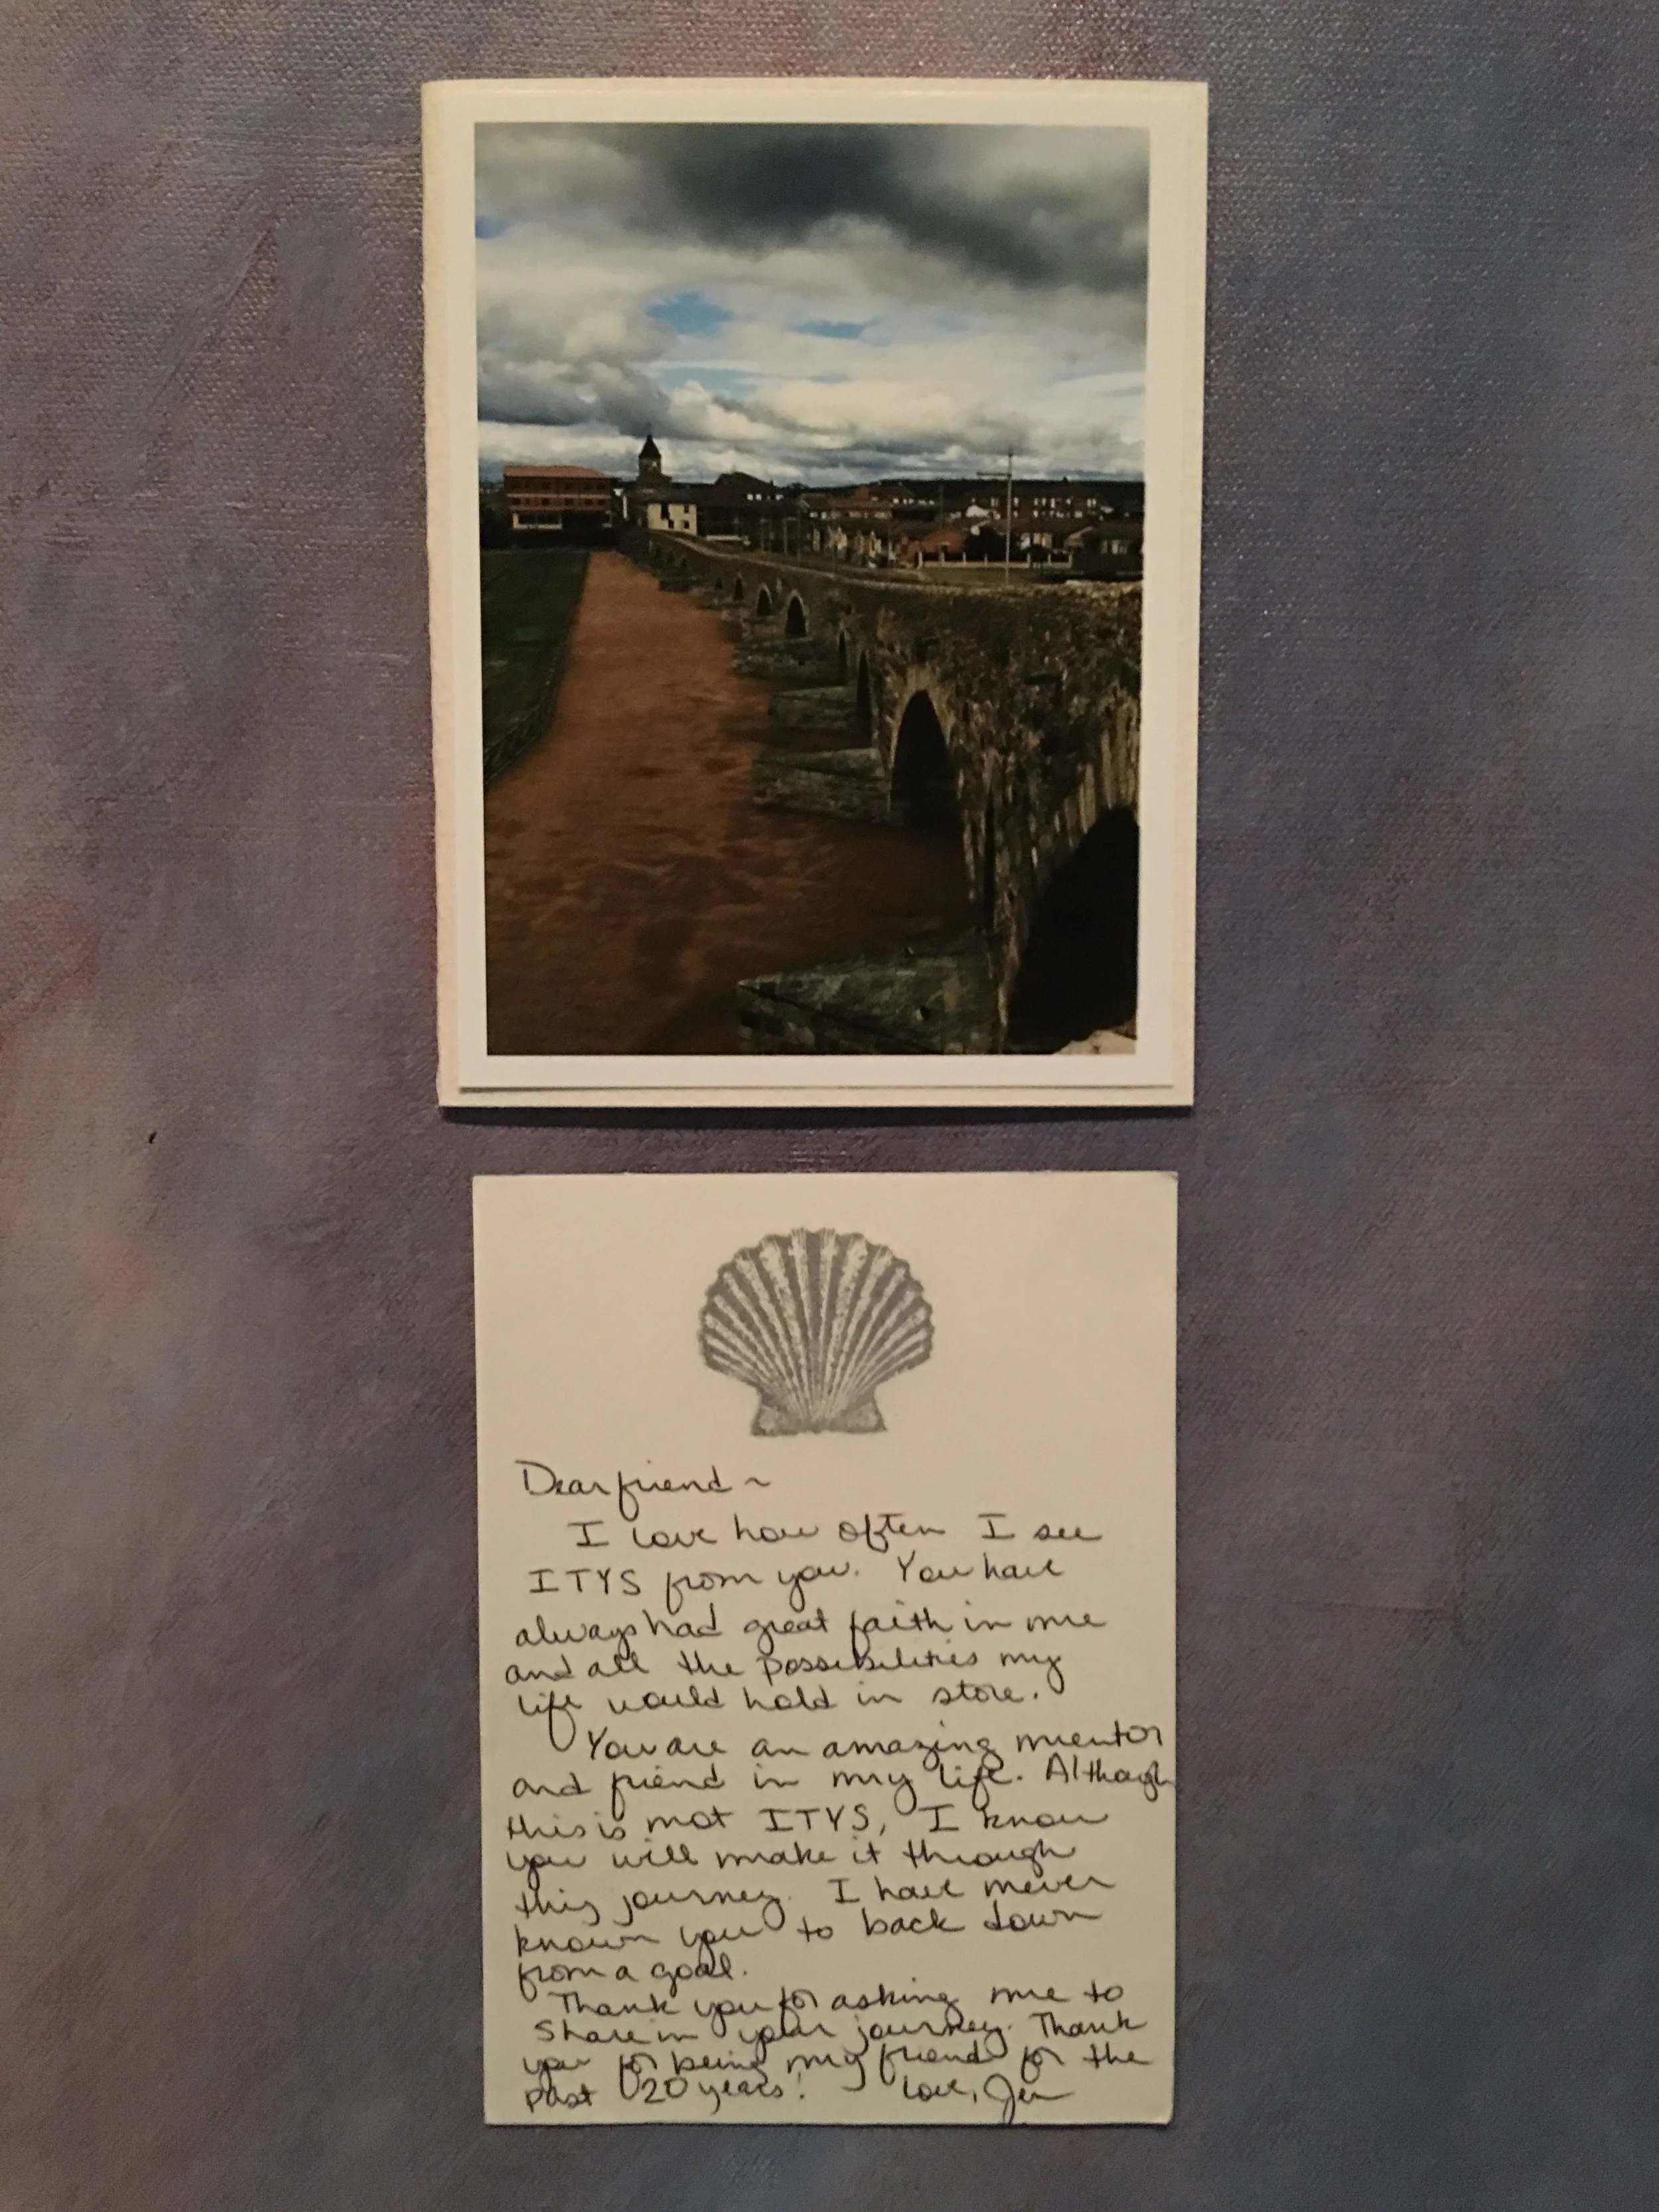 Dear friend ~
I love how often I see
ITYS from you. You have
always had great faith in me
and all the possibilities my
life would hold in store.
You are an amazing mentor
and friend in my life. Although
this is not ITYS, I know
you will make it through
this journey. I have never
known you to back down
from a goal.
Thank you for asking me to
share in your journey. Thank
you for being my friend for the
past 20 years! Love, Jen